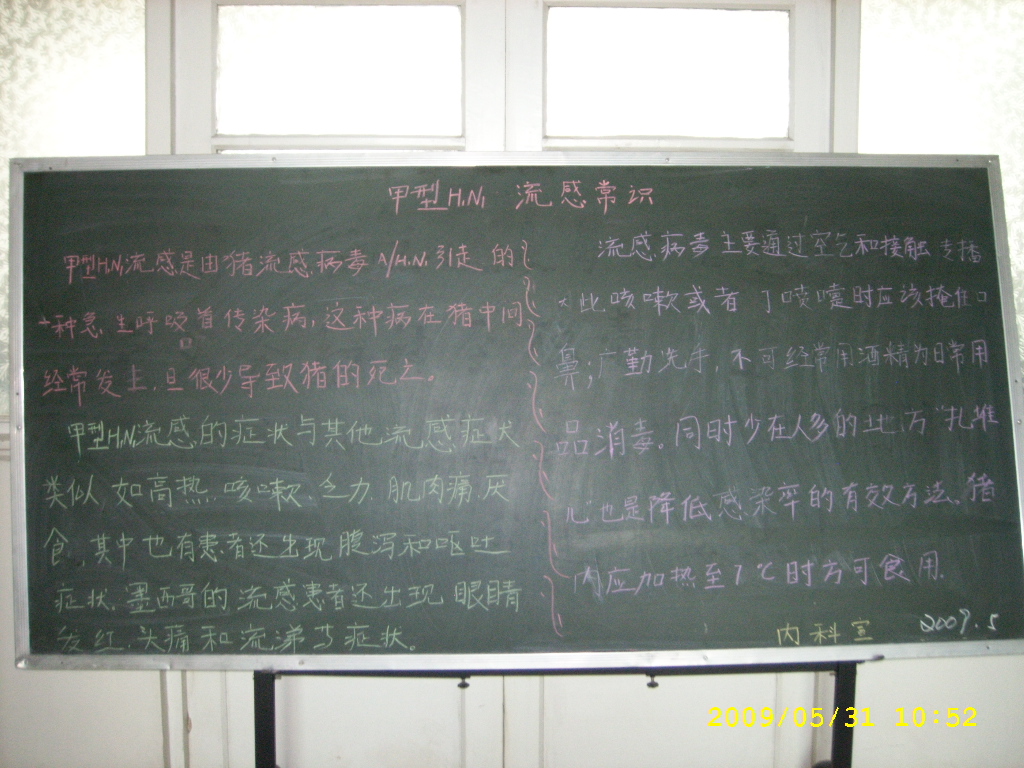 甲型H1N1 流感常识
甲型H1N1流感是由猪流感病毒A/H1N1引起的
一种急性呼吸道传染病,这种病在猪中间
经常发生,但很少导致猪的死亡。
甲型H1N1流感的症状与其他流感症状
类似,如高热、咳嗽、乏力、肌肉痛、厌
食,其中也有患者还出现腹泻和呕吐
症状,墨西哥的流感患者还出现眼睛
发红、头痛和流涕等症状。
流感病毒主要通过空气和接触传播
比咳嗽或者打喷嚏时应该掩住口
鼻;勤洗手,不可经常用酒精为日常用
品消毒。同时少在人多的地方"扎堆
儿"也是降低感染率的有效方法、猪
肉应加热至71℃时方可食用.
内科宣
2009.5
2009/05/31 10:52